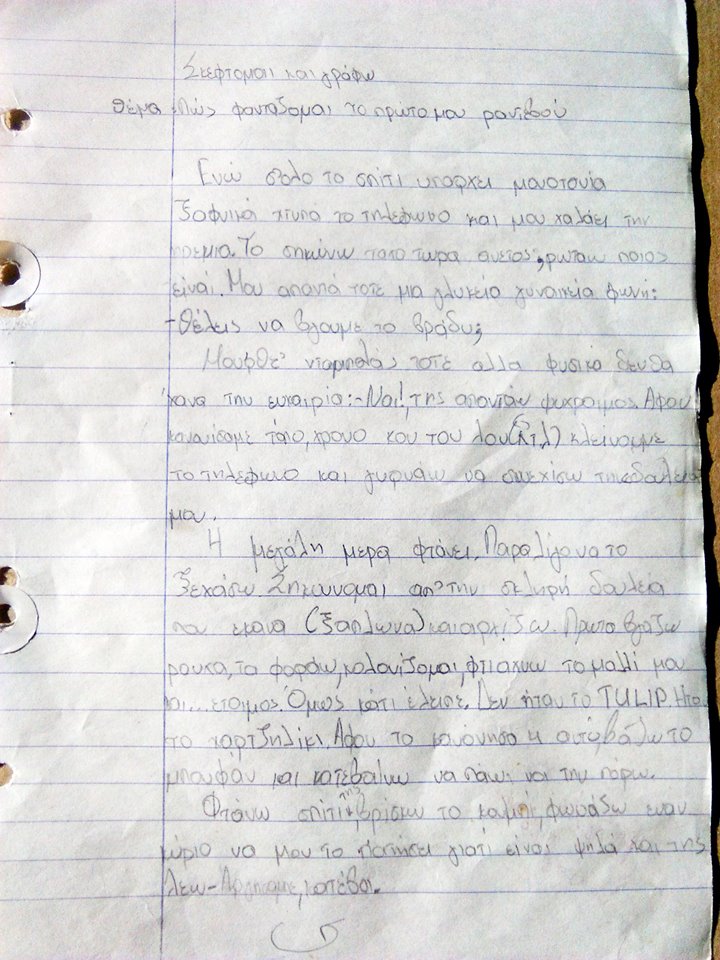 Σκέφτομαι και γράφω
Θέμα: Πώς φαντάζομαι το πρώτο μου ραντεβού
Ενώ σ'όλο το σπίτι υπάρχει μονοτονία
ξαφνικά χτυπά το τηλέφωνο και μου χαλάει την
ηρεμία. Το σηκώνω ρωτάω ποιος
είναι. Μου απαντά τότε μια γλυκειά γυναικεία φωνή:
-Θέλεις να βγούμε το βράδυ;
Μούρθε νταμπλάς τότε αλλά φυσικά δεν θα
έχανα την ευκαιρία:-Ναι!, της απαντάω ψύχραιμος. Αφού
κανονίσαμε τόπο, χρόνο και του λου (κτλ) κλείνουμε
το τηλέφωνο και γυρνάω να συνεχίσω την δουλειά
μου.
Η μεγάλη μέρα φτάνει. Παραλίγο να το
ξεχάσω. Σηκώνομαι απ'την σκληρή δουλειά
που έκανα (ξάπλωνα) και αρχίζω. Πρώτα βγάζω
ρούχα, τα φοράω, καλονίζομαι, φτιάχνω το μαλλί μου
και... έτοιμος. Όμως κάτι έλειπε. Δεν ήταν το TULIP. Ήταν
το χαρτζηλίκι. Αφού το κανόνησα κι αυτό βάζω το
μπουφάν και κατεβαίνω να πάω να την πάρω.
Φτάνω σπίτι της, βρίσκω το κουμπί, φωνάζω έναν
κύριο να μου το πατήσει γιατί είναι ψηλά και της
λέω-Αργησαμε, κατέβα.